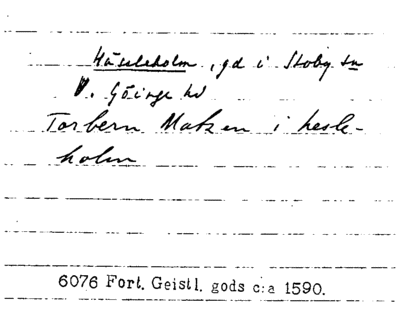 Hässleholm, gd i Stoby sn
V. Göinge hd
Torbern Matzen i hesle-
holm
6076 Fort. Geistl. gods c:a 1590.